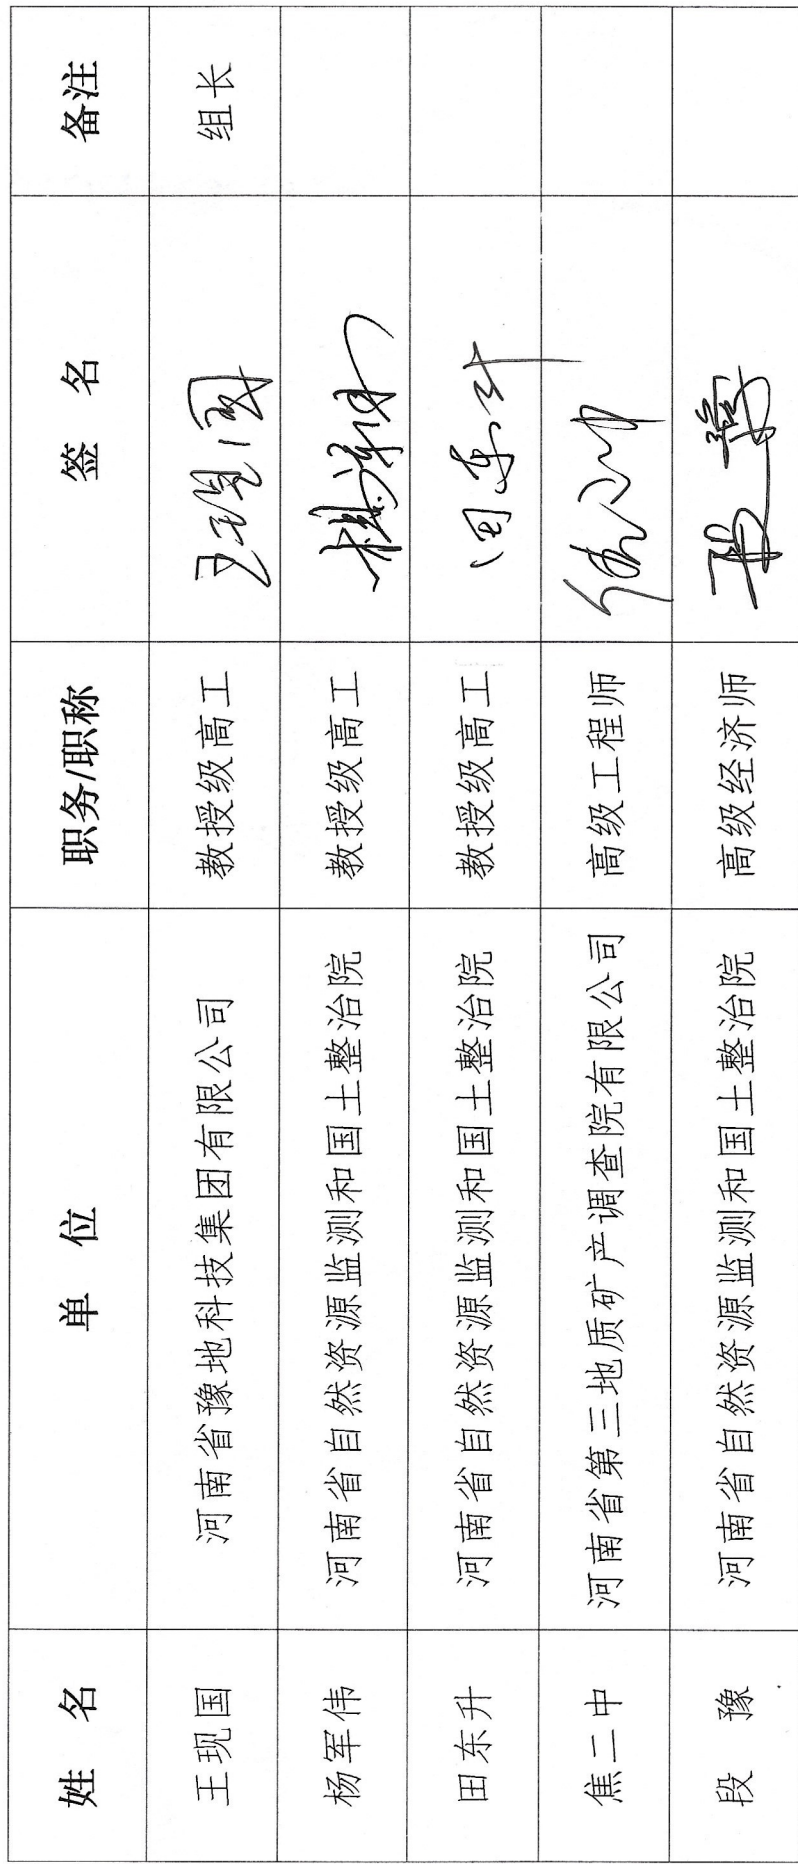 姓 名 单 位 职务/职称 签 名 备注
王现国 河南省豫地科技集团有限公司 教授级高工 王现国 组长
杨军伟 河南省自然资源监测和国土整治院 教授级高工
田东升 河南省自然资源监测和国土整治院 教授级高工 田东升
焦二中 河南省第三地质矿产调查院有限公司 高级工程师
段 豫 河南省自然资源监测和国土整治院 高级经济师 段豫